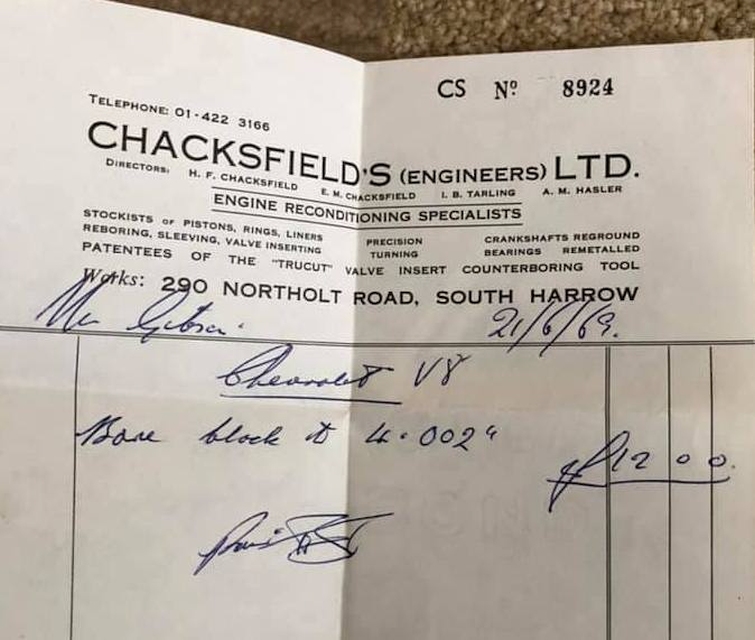 CS Nº 8924
TELEPHONE: 01-422 3166
CHACKSFIELD'S (ENGINEERS) LTD.
DIRECTORS: H. F. CHACKSFIELD E. M. CHACKSFIELD I. B. TARLING A. M. HASLER
ENGINE RECONDITIONING SPECIALISTS
STOCKISTS OF PISTONS, RINGS, LINERS PRECISION CRANKSHAFTS REGROUND
REBORING, SLEEVING, VALVE INSERTING TURNING BEARINGS REMETALLED
PATENTEES OF THE "TRUCUT" VALVE INSERT COUNTERBORING TOOL
Works: 290 NORTHOLT ROAD, SOUTH HARROW
Mr Gibson. 21/6/69.
Chevrolet V8
Bore block to 4.002"
£12 0 0.